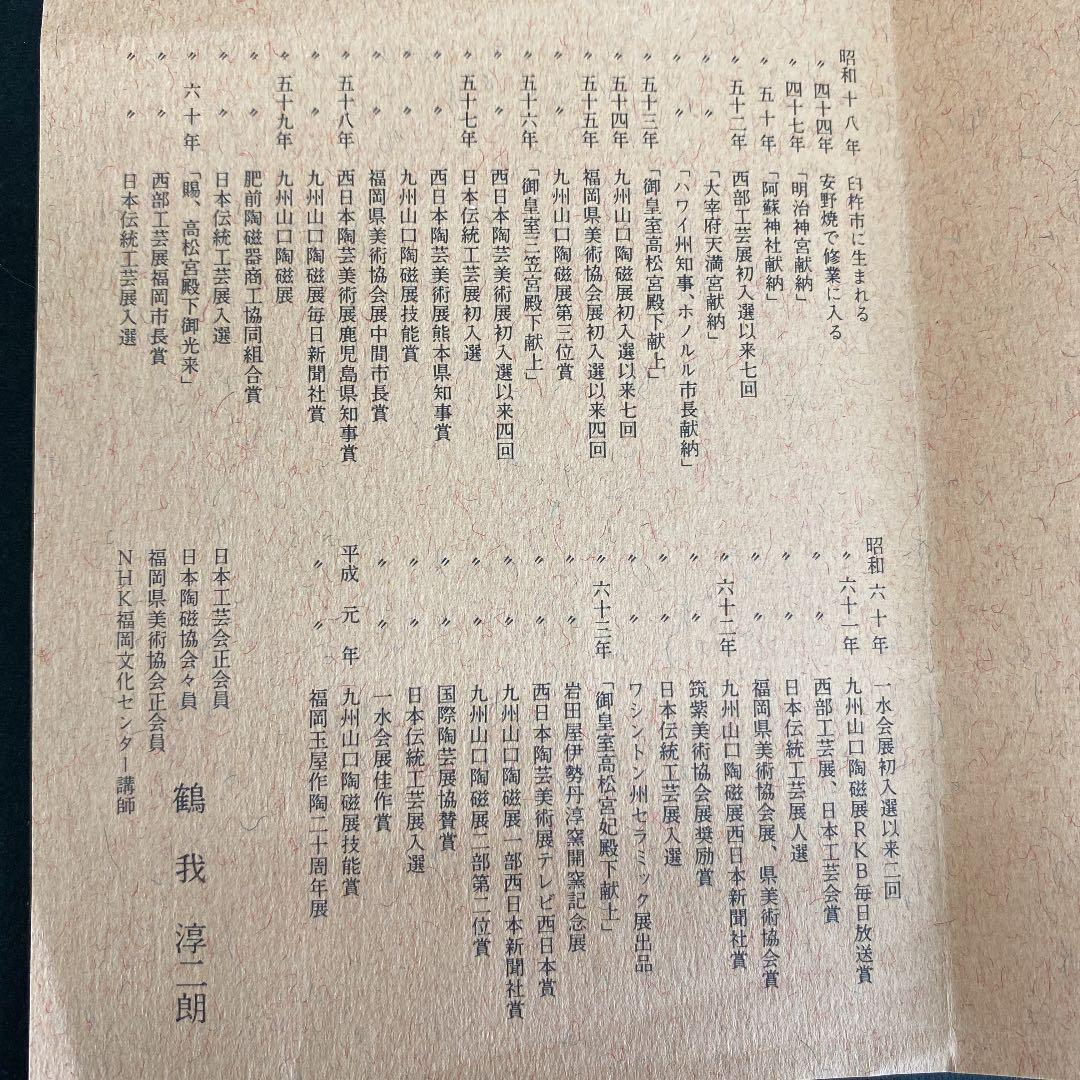 昭和十八年 臼杵市に生まれる
〃 四十四年 安野焼で修業に入る
〃 四十七年 「明治神宮献納」
〃 五十年 「阿蘇神社献納」
〃 五十二年 西部工芸展初入選以来七回
〃 〃 「大宰府天満宮献納」
〃 〃 「ハワイ州知事、ホノルル市長献納」
〃 五十三年 「御皇室高松宮殿下献上」
〃 五十四年 九州山口陶磁展初入選以来七回
〃 五十五年 福岡県美術協会展初入選以来四回
〃 〃 九州山口陶磁展第三位賞
〃 五十六年 「御皇室三笠宮殿下献上」
〃 〃 西日本陶芸美術展初入選以来四回
〃 五十七年 日本伝統工芸展初入選
〃 〃 西日本陶芸美術展熊本県知事賞
〃 〃 九州山口陶磁展技能賞
〃 〃 福岡県美術協会展中間市長賞
〃 五十八年 西日本陶芸美術展鹿児島県知事賞
〃 〃 九州山口陶磁展毎日新聞社賞
〃 五十九年 九州山口陶磁展
〃 〃 肥前陶磁器商工協同組合賞
〃 〃 日本伝統工芸展入選
〃 六十年 「賜、高松宮殿下御光来」
〃 〃 西部工芸展福岡市長賞
〃 〃 日本伝統工芸展入選
昭和六十年 一水会展初入選以来二回
〃 六十一年 九州山口陶磁展RKB毎日放送賞
〃 〃 西部工芸展、日本工芸会賞
〃 〃 日本伝統工芸展入選
〃 〃 福岡県美術協会展、県美術協会賞
〃 六十二年 九州山口陶磁展西日本新聞社賞
〃 〃 筑紫美術協会展奨励賞
〃 〃 日本伝統工芸展入選
〃 〃 ワシントン州セラミック展出品
〃 六十三年 「御皇室高松宮妃殿下献上」
〃 〃 岩田屋伊勢丹淳窯開窯記念展
〃 〃 西日本陶芸美術展テレビ西日本賞
〃 〃 九州山口陶磁展一部西日本新聞社賞
〃 〃 九州山口陶磁展二部第二位賞
〃 〃 国際陶芸展協賛賞
〃 〃 日本伝統工芸展入選
〃 〃 一水会展佳作賞
平成元年 九州山口陶磁展技能賞
〃 〃 福岡玉屋作陶二十周年展
日本工芸会正会員
日本陶磁協会々員
福岡県美術協会正会員
NHK福岡文化センター講師
鶴我淳二朗